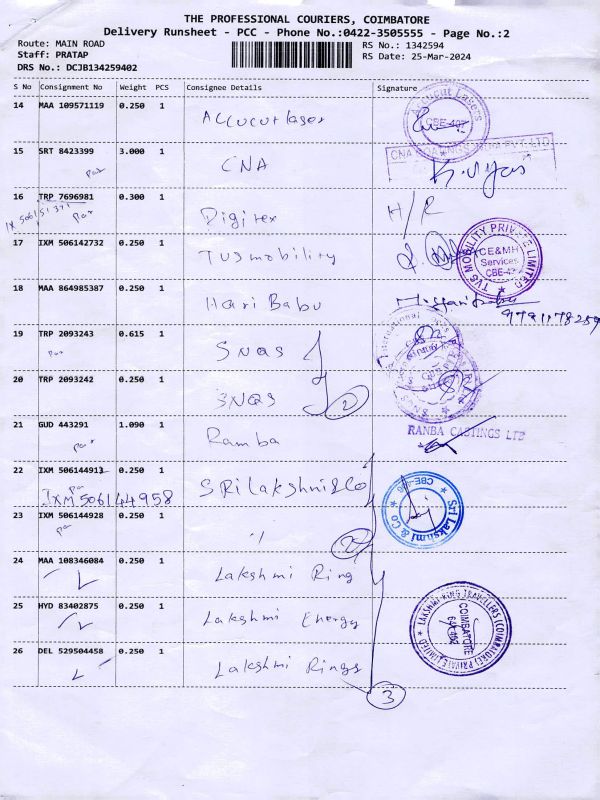 THE PROFESSIONAL COURIERS, COIMBATORE
Delivery Runsheet - PCC - Phone No.:0422-3505555 - Page No.:2
Route: MAIN ROAD
Staff: PRATAP
DRS No.: DCJB134259402
RS No.: 1342594
RS Date: 25-Mar-2024
S No Consignment No Weight PCS Consignee Details Signature
14 MAA 109571119 0.250 1 Accucut laser
Accucut Lasers
CBE-407
15 SRT 8423399 3.000 1 CNA
par
16 TRP 7696981 0.300 1 Digitex H/R
par
17 IXM 506142732 0.250 1 TVS mobility
TVS MOBILITY PRIVATE LIMITED
CE&MH
Services
18 MAA 864985387 0.250 1 Hari Babu
9791178259
19 TRP 2093243 0.615 1 SNQS
par
20 TRP 2093242 0.250 1 SNQS 2
21 GUD 443291 1.090 1 Ramba
par
RANBA CASTINGS LTD
22 IXM 506144913 0.250 1 SRi lakshmi & Co
par
IXM 506144958
Sri Lakshmi & Co
23 IXM 506144928 0.250 1 2
par
24 MAA 108346084 0.250 1 Lakshmi Ring
25 HYD 83402875 0.250 1 Lakshmi Energy
LAKSHMI RING TRAVELLERS (COIMBATORE) PRIVATE LIMITED
COIMBATORE
26 DEL 529504458 0.250 1 Lakshmi Rings
3